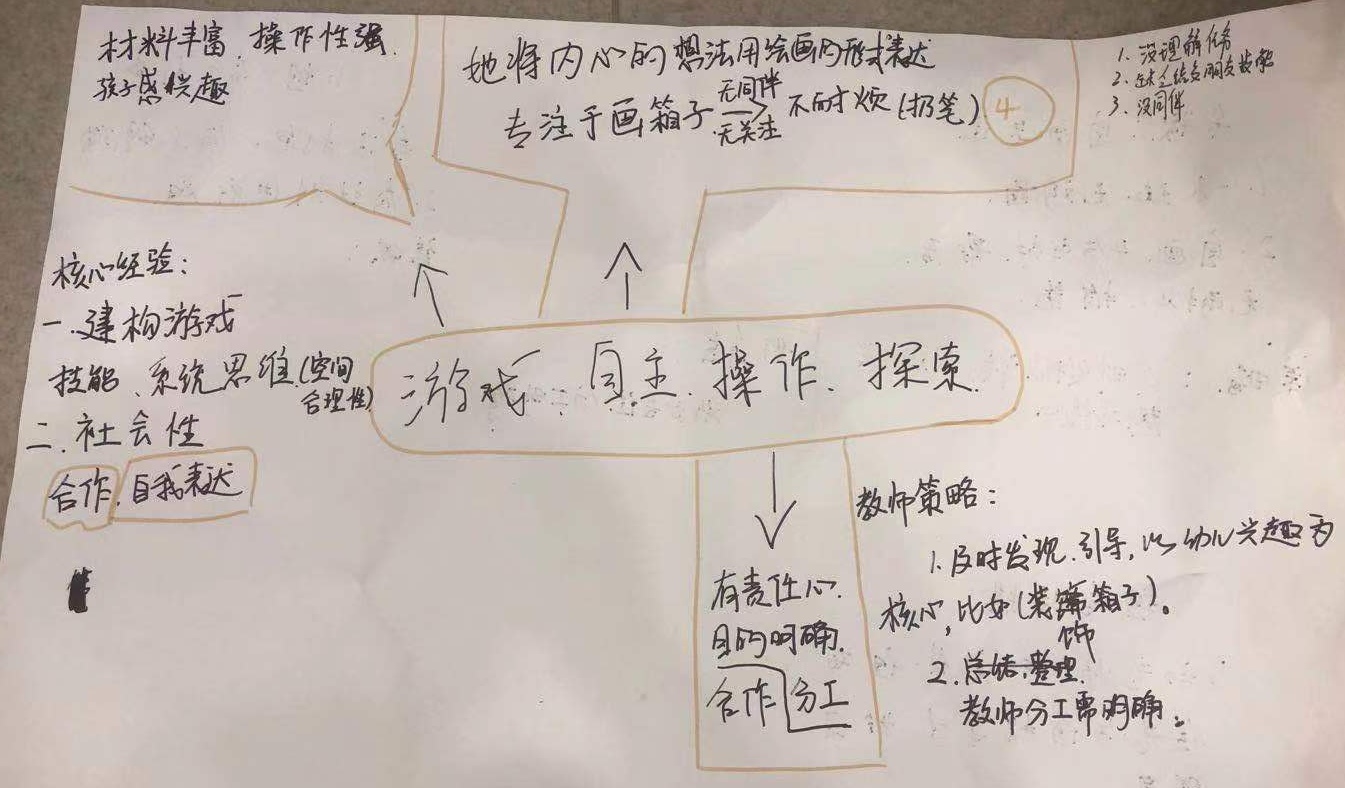 材料丰富、操作性强.
孩子感兴趣
她将内心的想法用绘画的形式表达
专注于画箱子 无同伴 无关注 不耐烦(扔笔) ④
1. 没理解任务
2. 交朋友技能
3. 没同伴
核心经验:
一.建构游戏
技能、系统思维(空间
合理性)
二.社会性
合作.自我表达
游戏 自主.操作.探索.
有责任心.
目的明确.
合作 分工
教师策略:
1.及时发现.引导,以幼儿兴趣为
核心,比如(装饰箱子)。
2.总结.整理.
教师分工需明确。